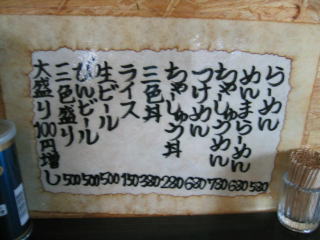 らーめん 530
めんまらーめん 630
ちゃしゅうめん 730
つけめん 630
ちゃしゅう丼 230
三色丼 330
ライス 150
生ビール 500
びんビール 500
三色盛り 500
大盛り100円増し